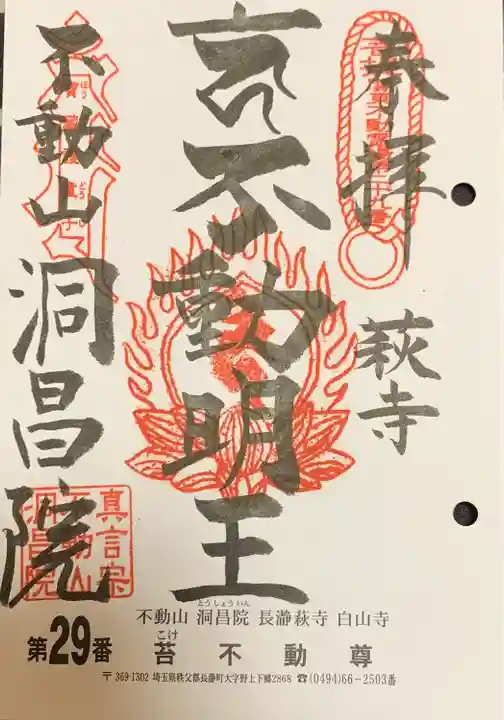 奉拝
萩寺
不動明王
不動山
洞昌院
真言宗
不動山
洞昌院
とうしょういん
不動山 洞昌院 長瀞萩寺 白山寺
第29番
こけ
苔不動尊
〒369-1302 埼玉県秩父郡長瀞町大字野上下郷2868 ☎(0494)66-2503番